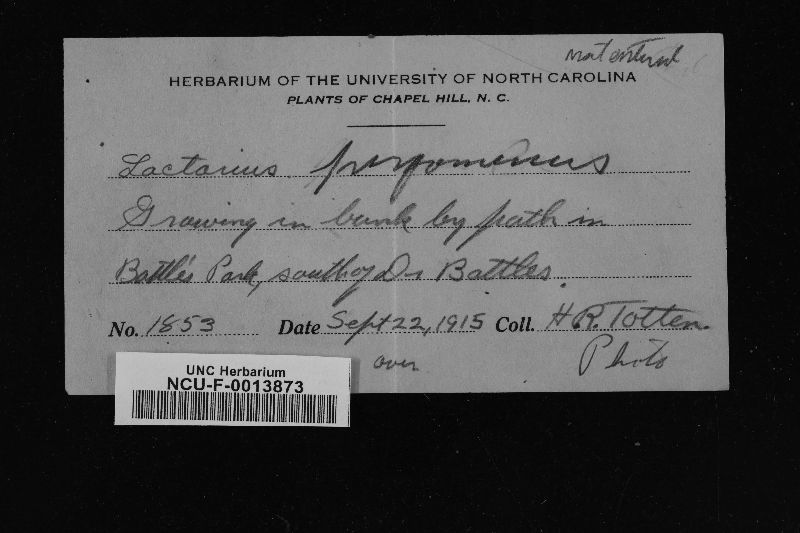 not entered
HERBARIUM OF THE UNIVERSITY OF NORTH CAROLINA
PLANTS OF CHAPEL HILL, N. C.
Lactarius
Growing in bank by path in
Battle's Park, south of Dr Battles.
No. 1853 Date Sept 22, 1915 Coll. H.R. Totten.
over Photo
UNC Herbarium
NCU-F-0013873